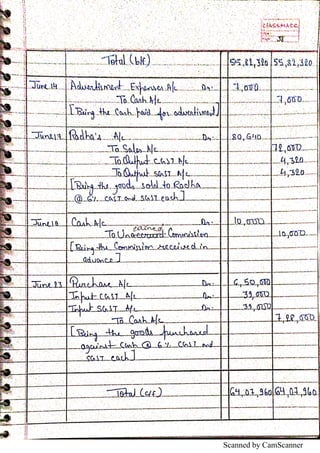 CLASSMATE
Total (b/f) 55,82,320 55,82,320
June 14 Advertisment Expenses A/c Dr. 7,000
To Cash A/c 7,000
[Being the Cash paid for advertisment]
June 17 Radha's A/c Dr. 80,640
To Sales A/c 72,000
To Output CGST A/c 4,320
To Output SGST A/c 4,320
[Being the goods sold to Radha
@ 6% CGST and SGST each]
Cash A/c Dr. 10,000
To Unearned Commission 10,000
[Being the Commission received in
advance]
June 23 Purchase A/c Dr. 6,50,000
Input CGST A/c Dr. 39,000
Input SGST A/c Dr. 39,000
To Cash A/c 7,28,000
[Being the goods purchased
against Cash @ 6% CGST and
SGST each]
Total (c/f) 64,07,960 64,07,960
Scanned by CamScanner